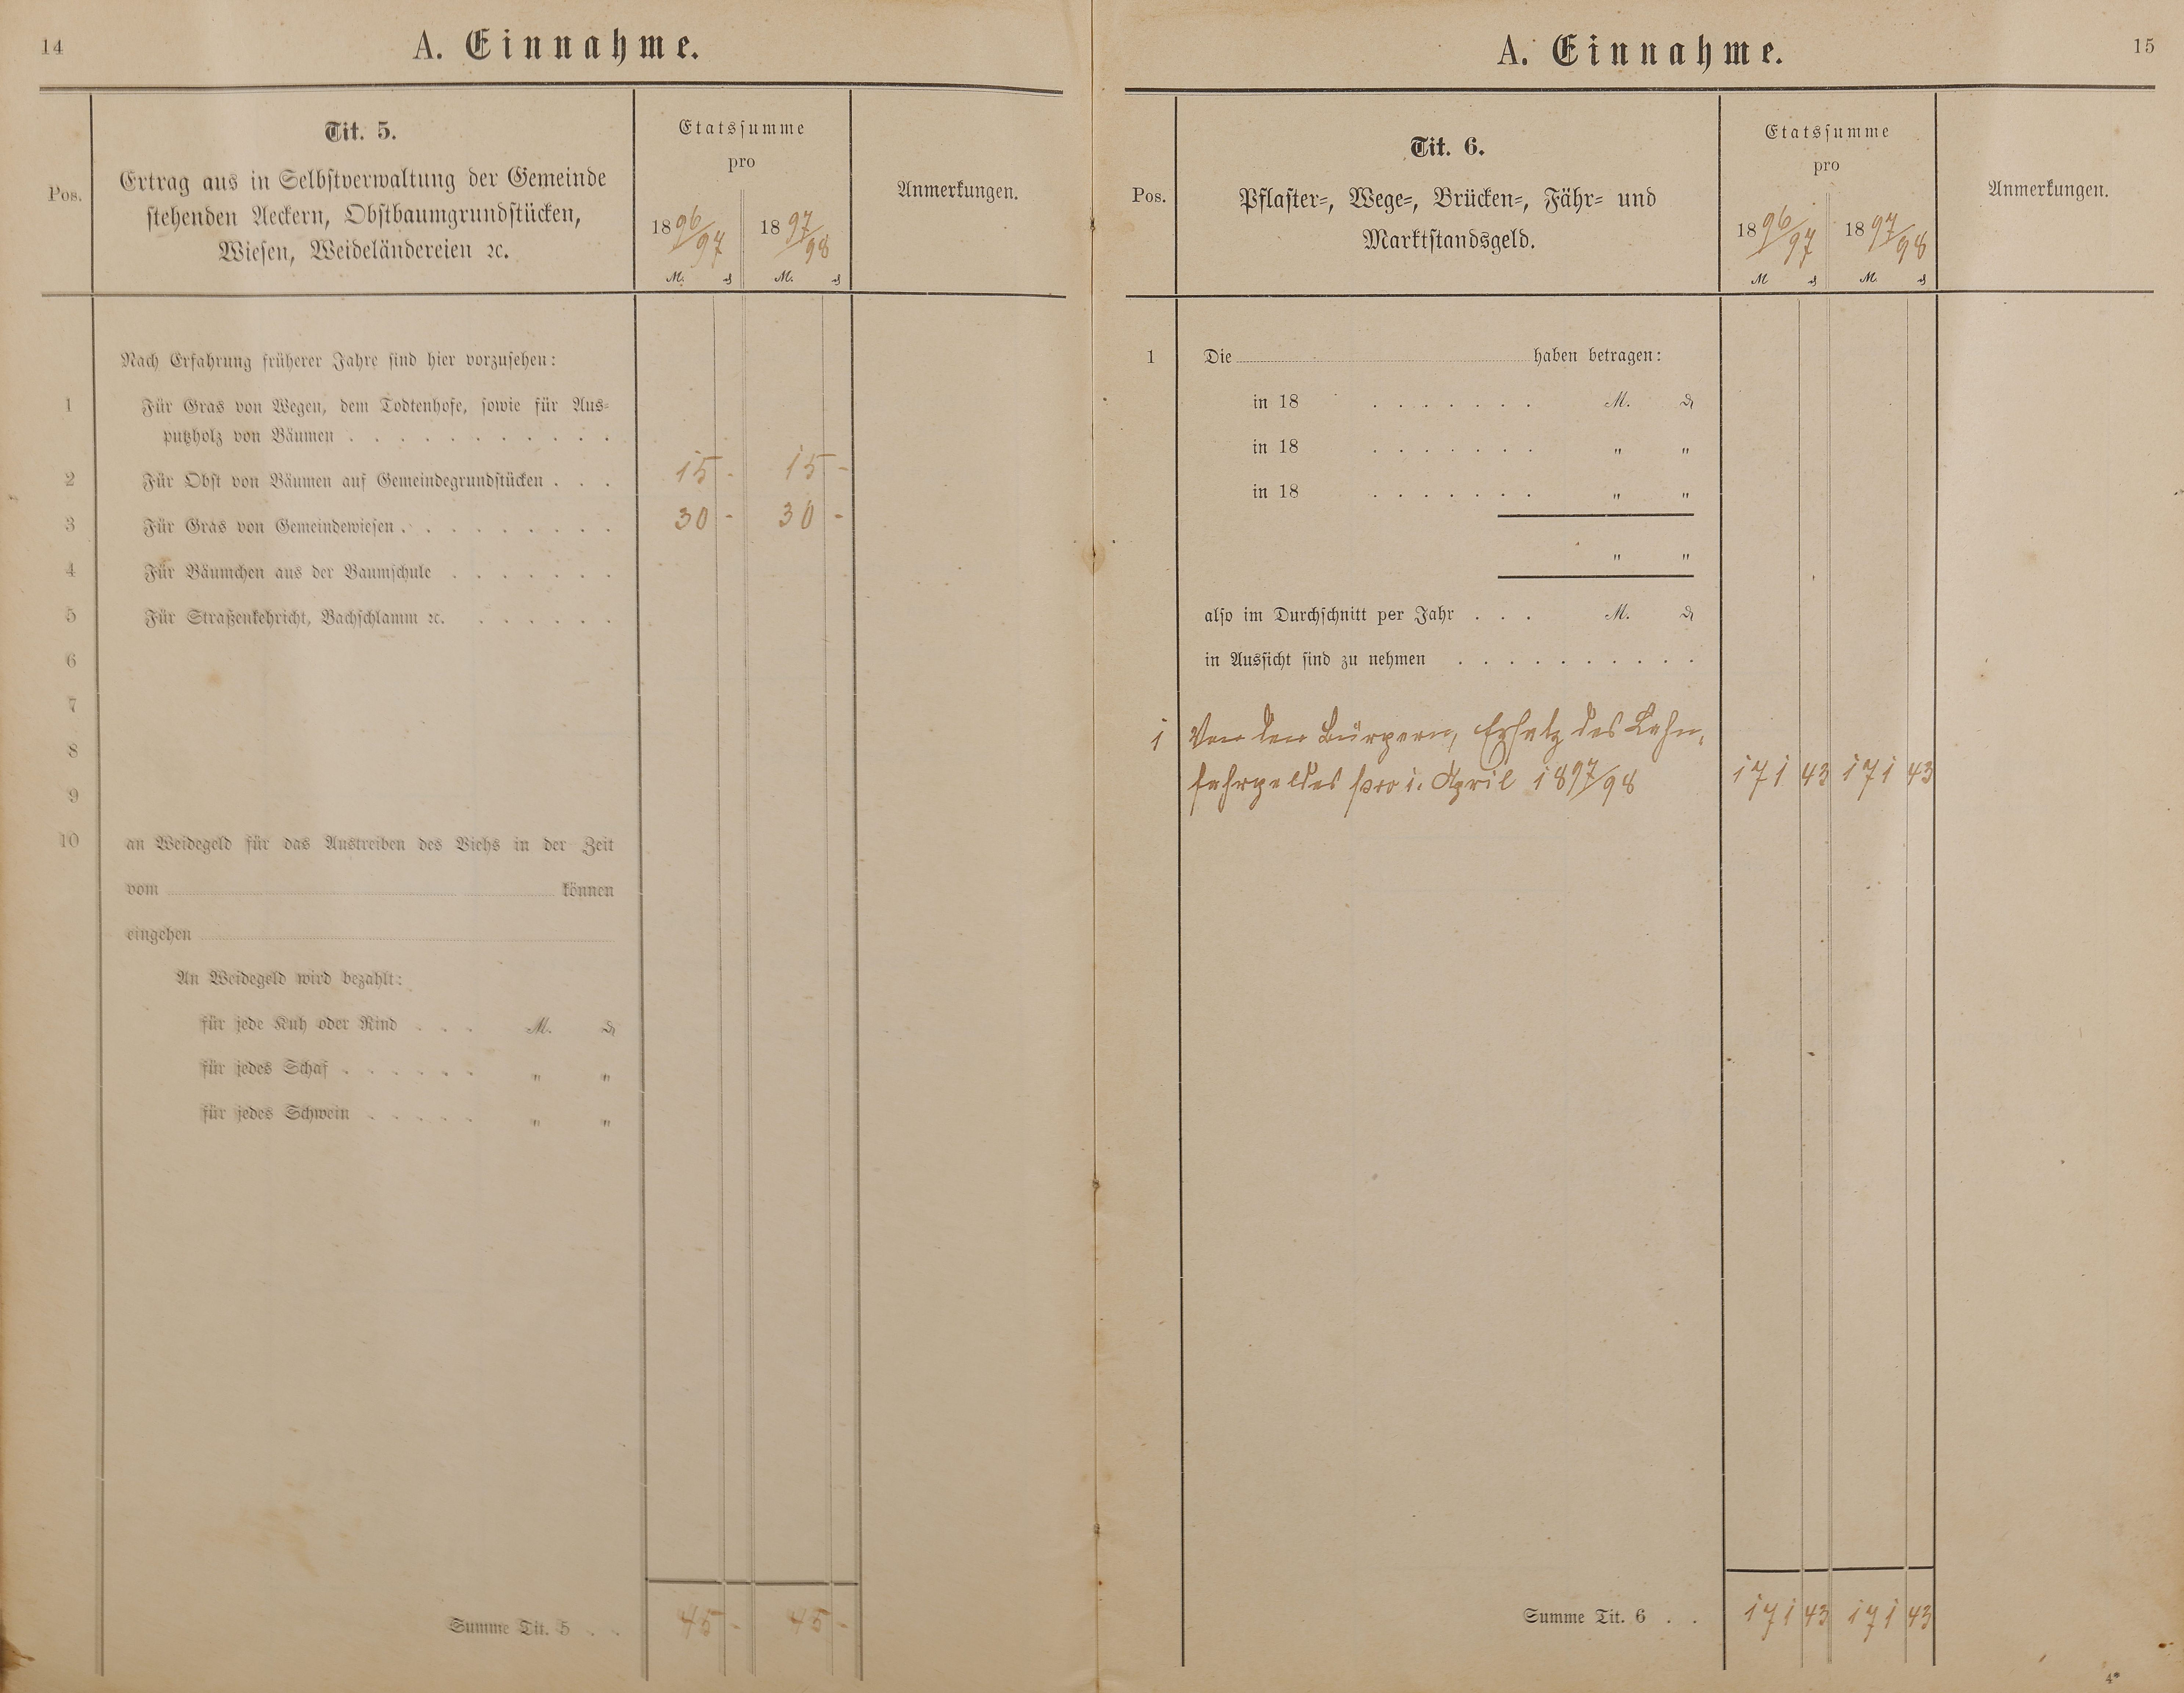 14
A. Einnahme.
Pos.
Tit. 5.
Ertrag aus in Selbstverwaltung der Gemeinde
stehenden Aeckern, Obstbaumgrundstücken,
Wiesen, Weideländereien ꝛc.
Etatssumme
pro
1896/97 1897/98
M. ₰ M. ₰
Anmerkungen.
Nach Erfahrung früherer Jahre sind hier vorzusehen:
1 Für Gras von Wegen, dem Todtenhofe, sowie für Aus=
putzholz von Bäumen . . . . . . . . . . .
2 Für Obst von Bäumen auf Gemeindegrundstücken . . . 15 - 15 -
3 Für Gras von Gemeindewiesen . . . . . . . . . 30 - 30 -
4 Für Bäumchen aus der Baumschule . . . . . . .
5 Für Straßenkehricht, Bachschlamm ꝛc. . . . . . .
6
7
8
9
10 an Weidegeld für das Austreiben des Viehs in der Zeit
vom können
eingehen
An Weidegeld wird bezahlt:
für jede Kuh oder Rind . . . M. ₰
für jedes Schaf . . . . . . " "
für jedes Schwein . . . . . " "
Summe Tit. 5 . . 45 - 45 -
A. Einnahme.
15
Pos.
Tit. 6.
Pflaster=, Wege=, Brücken=, Fähr= und
Marktstandsgeld.
Etatssumme
pro
1896/97 1897/98
M. ₰ M. ₰
Anmerkungen.
1 Die haben betragen:
in 18 . . . . . . . M. ₰
in 18 . . . . . . . " "
in 18 . . . . . . . " "
" "
also im Durchschnitt per Jahr . . . M. ₰
in Aussicht sind zu nehmen . . . . . . . . . .
1 Von den Bürgern, Ersatz des Lahn,
fahrgeldes pro 1. April 1897/98 171 43 171 43
Summe Tit. 6 . . 171 43 171 43
4*